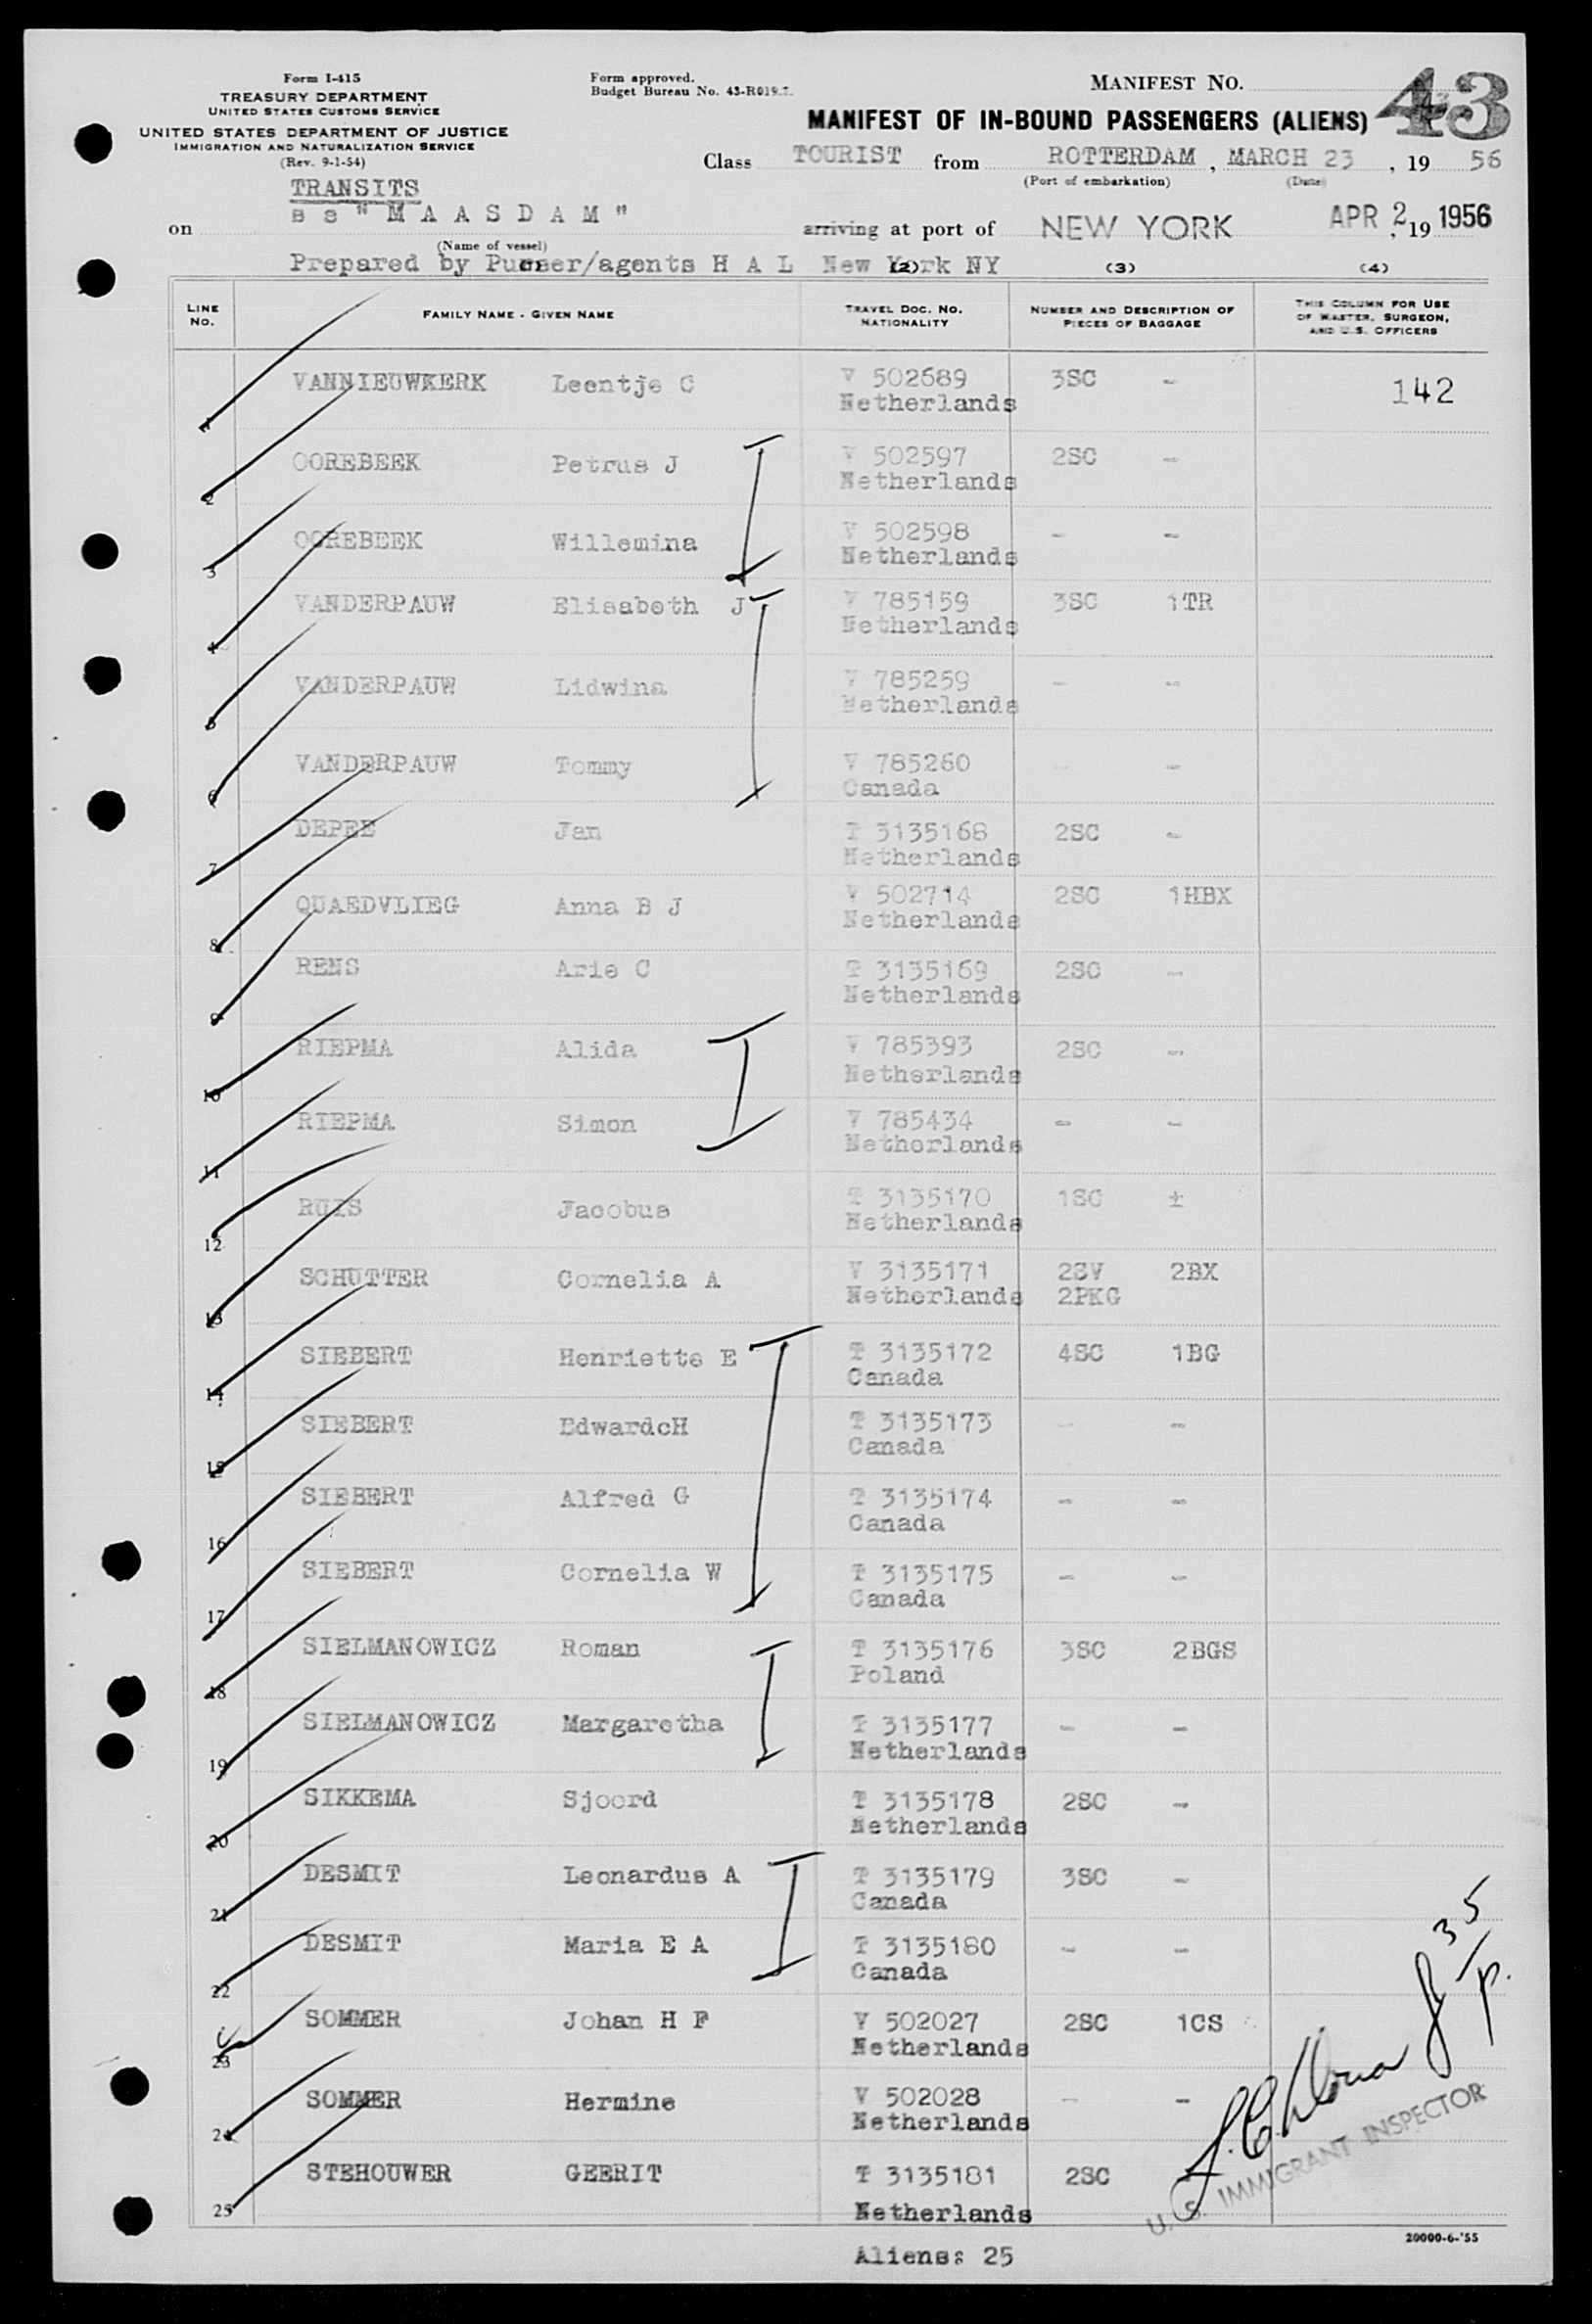 Form I-415
TREASURY DEPARTMENT
UNITED STATES CUSTOMS SERVICE
UNITED STATES DEPARTMENT OF JUSTICE
IMMIGRATION AND NATURALIZATION SERVICE
(Rev. 9-1-54)
Form approved.
Budget Bureau No. 43-R019.
MANIFEST NO. 43
MANIFEST OF IN-BOUND PASSENGERS (ALIENS)
Class TOURIST from ROTTERDAM, MARCH 23, 19 56
(Port of embarkation) (Date)
TRANSITS
on s s "M A A S D A M" arriving at port of NEW YORK APR 2, 19 1956
(Name of vessel)
Prepared by Purser/agents H A L New York NY
(2) (3) (4)
LINE NO. FAMILY NAME - GIVEN NAME TRAVEL DOC. NO. NATIONALITY NUMBER AND DESCRIPTION OF PIECES OF BAGGAGE THIS COLUMN FOR USE OF MASTER, SURGEON, AND U.S. OFFICERS
1 VANNIEUWKERK Leentje C V 502689 3SC - 142
Netherlands
2 OOREBEEK Petrus J V 502597 2SC -
Netherlands
3 OOREBEEK Willemina V 502598 - -
Netherlands
4 VANDERPAUW Elisabeth J V 785159 3SC 1TR
Netherlands
5 VANDERPAUW Lidwina V 785259 - -
Netherlands
6 VANDERPAUW Tommy V 785260 - -
Canada
7 DEPEE Jan T 3135168 2SC -
Netherlands
8 QUAEDVLIEG Anna B J V 502714 2SC 1HBX
Netherlands
9 RENS Arie C T 3135169 2SC -
Netherlands
10 RIEPMA Alida V 785393 2SC -
Netherlands
11 RIEPMA Simon V 785434 - -
Netherlands
12 RUIS Jacobus T 3135170 1SC ±
Netherlands
13 SCHUTTER Cornelia A V 3135171 2SV 2BX
Netherlands 2PKG
14 SIEBERT Henriette E T 3135172 4SC 1BG
Canada
15 SIEBERT EdwardcH T 3135173 - -
Canada
16 SIEBERT Alfred G T 3135174 - -
Canada
17 SIEBERT Cornelia W T 3135175 - -
Canada
18 SIELMANOWICZ Roman T 3135176 3SC 2BGS
Poland
19 SIELMANOWICZ Margaretha T 3135177 - -
Netherlands
20 SIKKEMA Sjoerd T 3135178 2SC -
Netherlands
21 DESMIT Leonardus A T 3135179 3SC -
Canada
22 DESMIT Maria E A T 3135180 - -
Canada
23 SOMMER Johan H F V 502027 2SC 1CS
Netherlands
24 SOMMER Hermine V 502028 - -
Netherlands
25 STEHOUWER GEERIT T 3135181 2SC
Netherlands
U. S. IMMIGRANT INSPECTOR
20000-6-'55
Aliens: 25